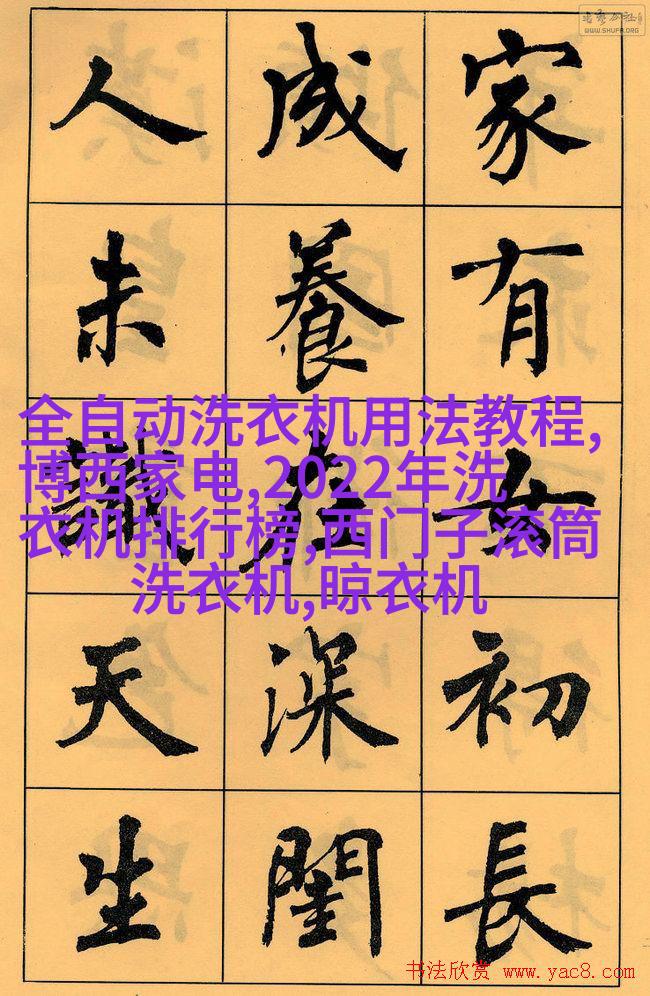 WWW.SHUFA.ORG
家有女初長
成養在深閨
人未識天生
全自动洗衣机用法教程,
博西家电,2022年洗
衣机排行榜,西门子滚筒
洗衣机,晾衣机
书法欣赏 www.yac8.com